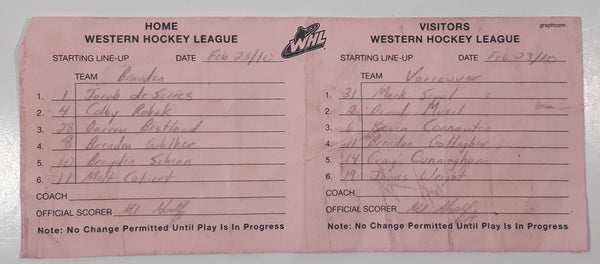 HOME
WESTERN HOCKEY LEAGUE
STARTING LINE-UP DATE Feb 23/10
TEAM Brandon
1. 1 Jacob de Serres
2. 4 Colby Robak
3. 28 Darren Bestland
4. 8 Brenden Walker
5. 10 Brayden Schenn
6. 11 Matt Calvert
COACH
OFFICIAL SCORER
Note: No Change Permitted Until Play Is In Progress
WHL
graphcom
VISITORS
WESTERN HOCKEY LEAGUE
STARTING LINE-UP DATE Feb 23/10
TEAM Vancouver
1. 31 Mark Segal
2. 2 David Musil
3. 6 Kevin Connauton
4. 11 Brendan Gallagher
5. 14 Craig Cunningham
6. 19 James Wright
COACH
OFFICIAL SCORER
Note: No Change Permitted Until Play Is In Progress